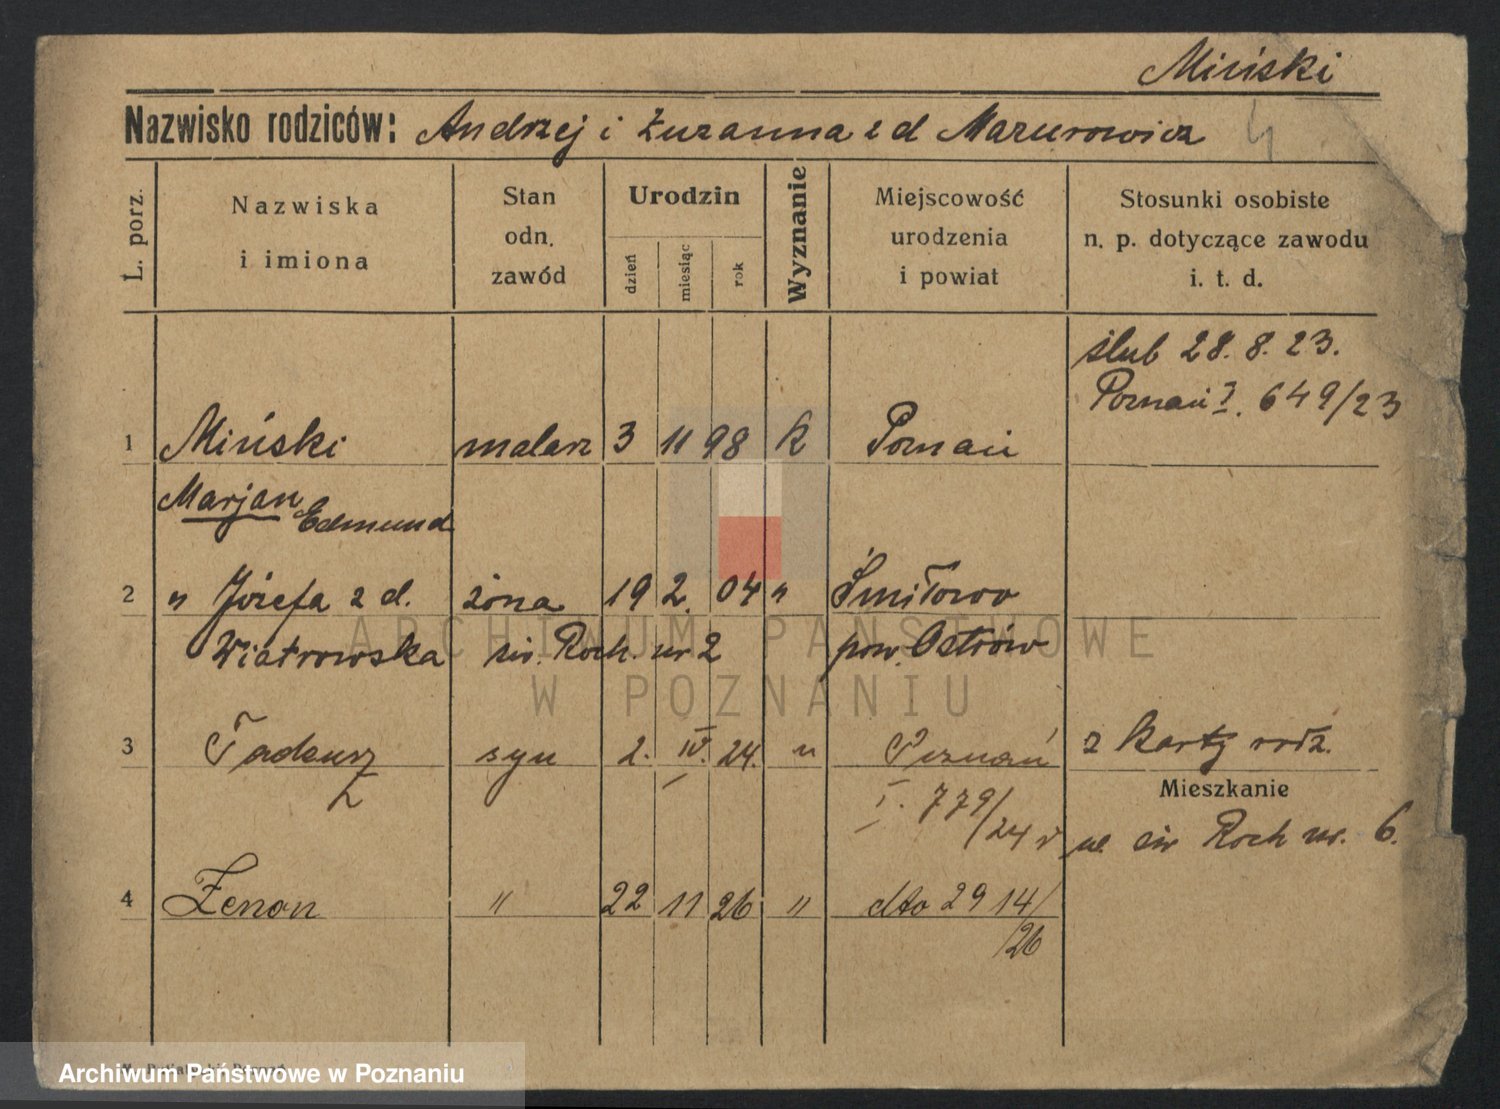 Miński
Nazwisko rodziców: Andrzej i Zuzanna z d Mazurowicz 4
L. porz.
Nazwiska
i imiona
Stan
odn.
zawód
Urodzin
dzień
miesiąc
rok
Wyznanie
Miejscowość
urodzenia
i powiat
Stosunki osobiste
n. p. dotyczące zawodu
i. t. d.
ślub 28. 8. 23.
Poznań I. 649/23
1 Miński malarz 3 11 98 k Poznań
Marjan Edmund
2 " Józefa z d. żona 19 2. 04 " Śmiłowo
Wiatrowska św. Roch. nr 2 pow. Ostrów
ARCHIWUM PAŃSTWOWE
W POZNANIU
3 Tadeusz syn 2. IV. 24. " Poznań z karty rodz.
I. 779/24
Mieszkanie
św Roch nr. 6.
4 Zenon " 22 11 26 " dto 2914/26
Archiwum Państwowe w Poznaniu